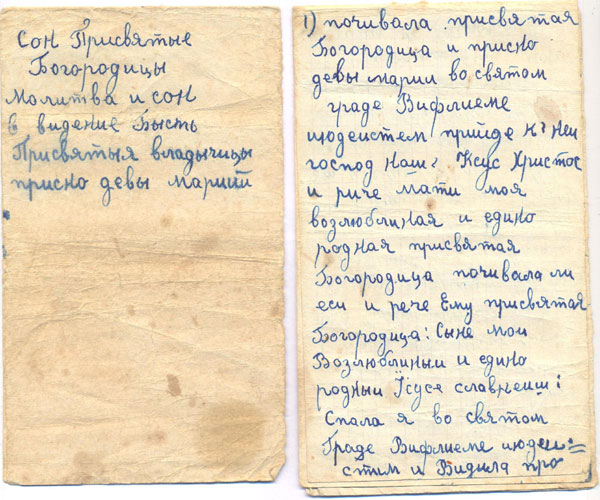 Сон Присвятые
Богородицы
Молитва и сон
в видение Бысть
Присвятыя владычицы
присно девы марии
1) почивала присвятая
Богородица и присно
девы марии во святом
граде Вифлиеме
июдеистем прииде к ней
господ наш Iсус Христос
и риче мати моя
возлюбиная и едино
родная присвятая
Богородица почивала ли
еси и рече Ему присвятая
Богородица: Сыне мои
Возлюблиныи и едино
родныи Iсусе славнеиш
Спала я во святом
Граде Вифлиеме июдеи=
стим и Видила про